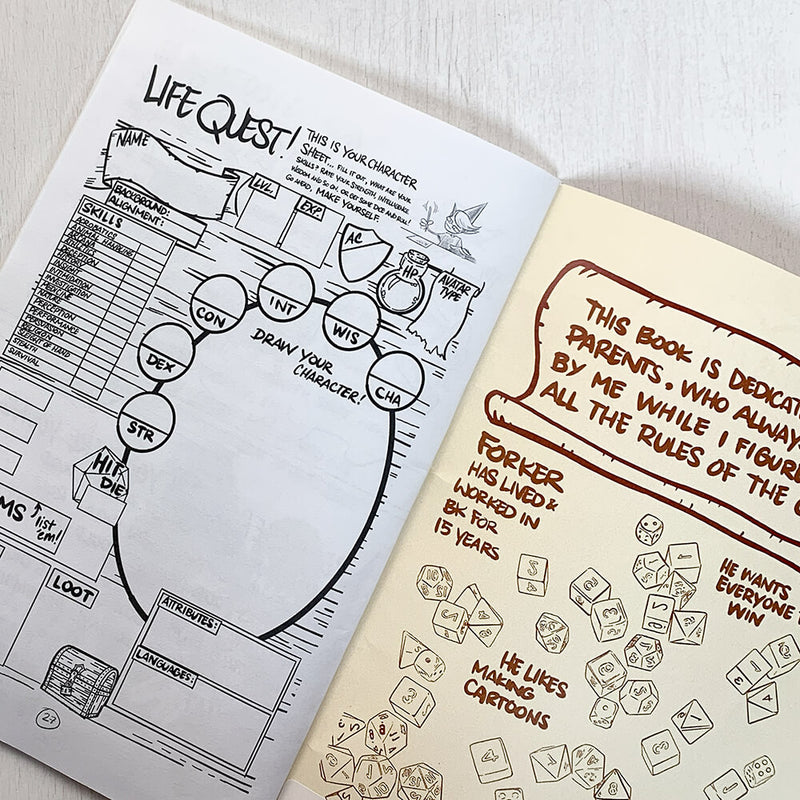 LIFE QUEST!
THIS IS YOUR CHARACTER
SHEET... FILL IT OUT, WHAT ARE YOUR
SKILLS? RATE YOUR STRENGTH, INTELLIGENCE
WISDOM AND SO ON, OR GET SOME DICE AND ROLL!
GO AHEAD, MAKE YOURSELF
NAME
BACKGROUND:
ALIGNMENT:
LVL.
EXP.
AC
HP
AVATAR
TYPE
SKILLS
ACROBATICS
ANIMAL HANDLING
ARCANA
DECEPTION
INTIMIDATION
INVESTIGATION
MEDICINE
PERCEPTION
PERFORMANCE
PERSUASION
RELIGION
SLEIGHT OF HAND
SURVIVAL
STR
DEX
CON
INT
WIS
CHA
DRAW YOUR
CHARACTER!
HIT
DIE
MS
list
'em!
LOOT
ATTRIBUTES:
LANGUAGES:
27
THIS BOOK IS DEDICAT
PARENTS. WHO ALWAY
BY ME WHILE I FIGUR
ALL THE RULES OF THE
FORKER
HAS LIVED &
WORKED IN
BK FOR
15 YEARS
HE WANTS
EVERYONE
WIN
HE LIKES
MAKING
CARTOONS